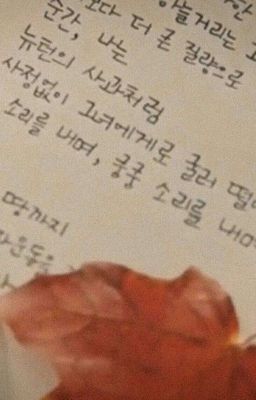 보다 더 큰 질량으로
순간, 나는
뉴턴의 사과처럼
사정없이 그녀에게로 굴러 떨
소리를 내며, 쿵쿵 소리를 내며
땅까지